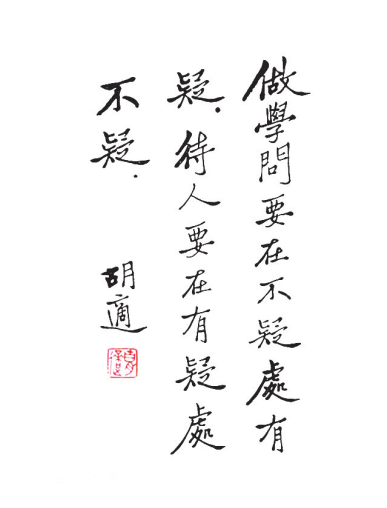 做學問要在不疑處有
疑.待人要在有疑處
不疑.
胡適